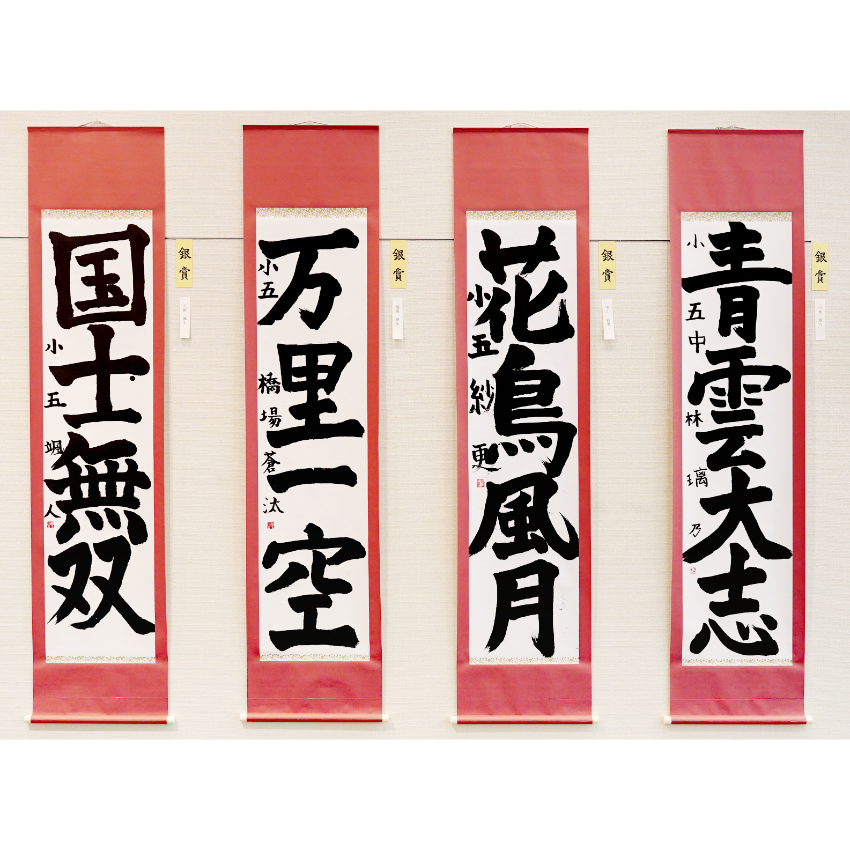 国士無双
小五 颯人
銀賞
万里一空
小五 橋場蒼汰
銀賞
花鳥風月
小五 紗更
銀賞
青雲大志
小五 中林璃乃
銀賞